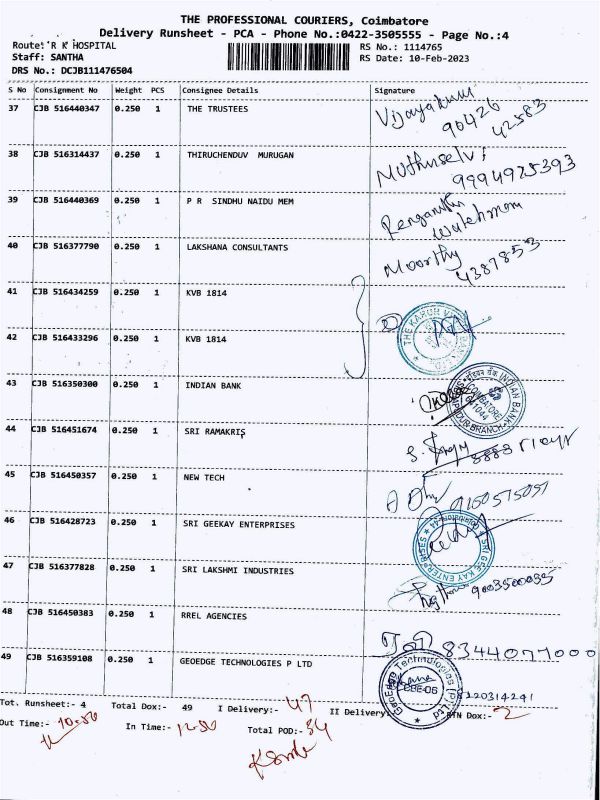 THE PROFESSIONAL COURIERS, Coimbatore
Delivery Runsheet - PCA - Phone No.:0422-3505555 - Page No.:4
Route: R K HOSPITAL
Staff: SANTHA
DRS No.: DCJB111476504
RS No.: 1114765
RS Date: 10-Feb-2023
S No Consignment No Weight PCS Consignee Details Signature
37 CJB 516440347 0.250 1 THE TRUSTEES Vijayakumar
90426
42583
38 CJB 516314437 0.250 1 THIRUCHENDUV MURUGAN Muthuselvi
9994925393
39 CJB 516440369 0.250 1 P R SINDHU NAIDU MEM
Watchman
40 CJB 516377790 0.250 1 LAKSHANA CONSULTANTS Moorthy
4387853
41 CJB 516434259 0.250 1 KVB 1814
42 CJB 516433296 0.250 1 KVB 1814
43 CJB 516350300 0.250 1 INDIAN BANK
INDIAN BANK
COIMBATORE
641044
BRANCH
44 CJB 516451674 0.250 1 SRI RAMAKRIS
45 CJB 516450357 0.250 1 NEW TECH
9150515051
46 CJB 516428723 0.250 1 SRI GEEKAY ENTERPRISES
SRI GEE KAY ENTERPRISES
47 CJB 516377828 0.250 1 SRI LAKSHMI INDUSTRIES
9003500035
48 CJB 516450383 0.250 1 RREL AGENCIES
8344077000
49 CJB 516359108 0.250 1 GEOEDGE TECHNOLOGIES P LTD
GeoEdge Technologies (P) Ltd
CBE-06
Tot. Runsheet:- 4 Total Dox:- 49 I Delivery:- 47 II Delivery: RTN Dox:- 2
Out Time:- 10-50 In Time:- 12-50 Total POD:- 34